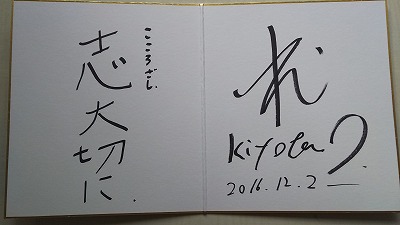 こころざし
志大切に.
Kiyota
2016.12.2